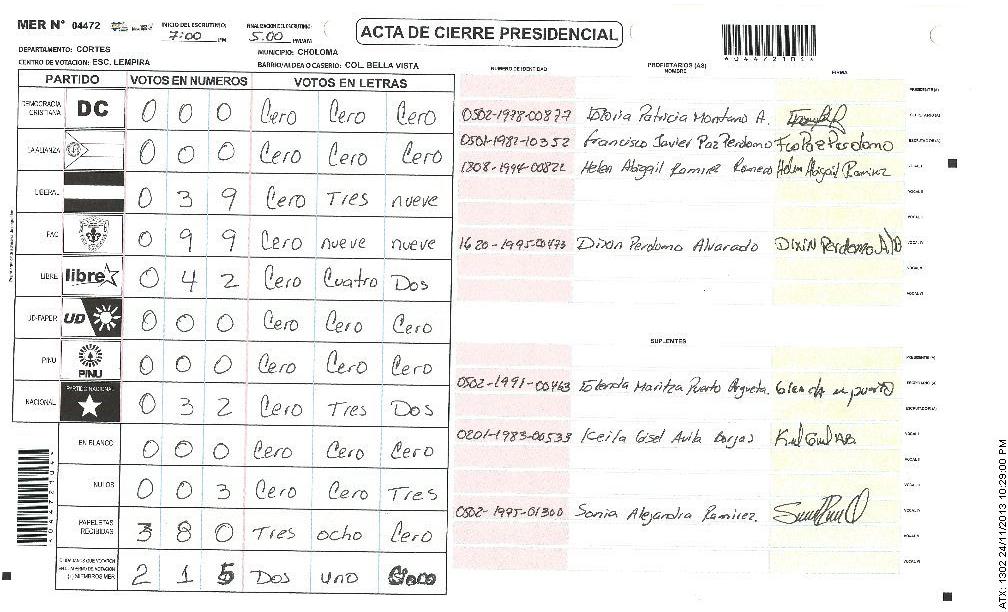 MER N° 04472
INICIO DEL ESCRUTINIO: 7:00 PM
FINALIZACION DEL ESCRUTINIO: 5:00 PM/AM
ACTA DE CIERRE PRESIDENCIAL
0447210
DEPARTAMENTO: CORTES
MUNICIPIO: CHOLOMA
CENTRO DE VOTACION: ESC. LEMPIRA
BARRIO/ALDEA O CASERIO: COL. BELLA VISTA
PARTIDO VOTOS EN NUMEROS VOTOS EN LETRAS
DEMOCRACIA CRISTIANA DC 0 0 0 Cero Cero Cero
LA ALIANZA 0 0 0 Cero Cero Cero
LIBERAL 0 3 9 Cero Tres nueve
PAC 0 9 9 Cero nueve nueve
LIBRE libre 0 4 2 Cero Cuatro Dos
UD-FAPER UD 0 0 0 Cero Cero Cero
PINU PINU 0 0 0 Cero Cero Cero
NACIONAL PARTIDO NACIONAL 0 3 2 Cero Tres Dos
EN BLANCO 0 0 0 Cero Cero Cero
NULOS 0 0 3 Cero Cero Tres
PAPELETAS RECIBIDAS 3 8 0 Tres ocho Cero
CIUDADANOS QUE VOTARON
(+) MIEMBROS MER 2 1 5 Dos uno
NUMERO DE IDENTIDAD
PROPIETARIOS (AS)
NOMBRE
FIRMA
PRESIDENTE (A)
0502-1978-00877 Patricia Montano A.
SECRETARIO (A)
0501-1982-10352 Francisco Javier Paz Perdomo Fco Paz Perdomo
ESCRUTADOR (A)
1808-1994-00822 Helen Abigail Ramirez Romero Helen Abigail Ramirez
VOCAL I
VOCAL II
VOCAL III
1620-1995-00473 Dixon Perdomo Alvarado
VOCAL IV
VOCAL V
VOCAL VI
SUPLENTES
PRESIDENTE (A)
0502-1991-00463 Maritza Puerto Argueta.
SECRETARIO (A)
ESCRUTADOR (A)
0201-1983-00533 Keila Gisel Avila Borjas
VOCAL I
VOCAL II
VOCAL III
0502-1995-01300 Sonia Alejandra Ramirez.
VOCAL IV
VOCAL V
VOCAL VI
ATX: 1302 24/11/2013 10:29:00 PM